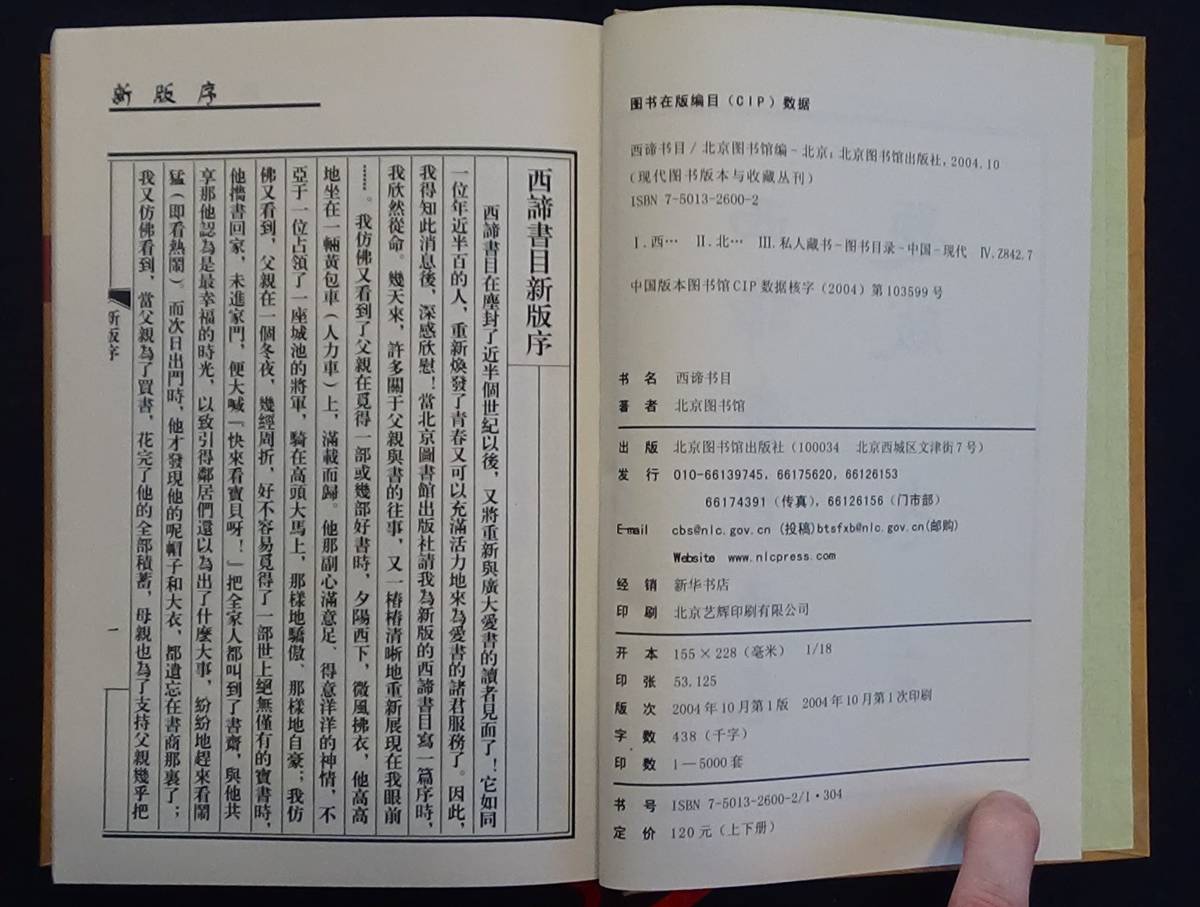 图书在版编目（CIP）数据
西谛书目/北京图书馆编-北京：北京图书馆出版社，2004.10
（现代图书版本与收藏丛刊）
ISBN 7-5013-2600-2
Ⅰ.西… Ⅱ.北… Ⅲ.私人藏书-图书目录-中国-现代 Ⅳ.Z842.7
中国版本图书馆CIP数据核字（2004）第103599号
书名 西谛书目
著者 北京图书馆
出版 北京图书馆出版社（100034 北京西城区文津街7号）
发行 010-66139745，66175620，66126153
66174391（传真），66126156（门市部）
E-mail cbs@nlc.gov.cn (投稿)btsfxb@nlc.gov.cn(邮购)
Website www.nlcpress.com
经销 新华书店
印刷 北京艺辉印刷有限公司
开本 155×228（毫米） 1/18
印张 53.125
版次 2004年10月第1版 2004年10月第1次印刷
字数 438（千字）
印数 1—5000套
书号 ISBN 7-5013-2600-2/I·304
定价 120元（上下册）
新版序
西諦書目新版序
西諦書目在塵封了近半個世紀以後，又將重新與廣大愛書的讀者見面了！它如同
一位年近半百的人，重新煥發了青春又可以充滿活力地來為愛書的諸君服務了。因此，
我得知此消息後，深感欣慰！當北京圖書館出版社請我為新版的西諦書目寫一篇序時，
我欣然從命。幾天來，許多關于父親與書的往事，又一樁樁清晰地重新展現在我眼前
……。我仿佛又看到了父親在覓得一部或幾部好書時，夕陽西下，微風拂衣，他高高
地坐在一輛黃包車（人力車）上，滿載而歸。他那副心滿意足、得意洋洋的神情，不
亞于一位占領了一座城池的將軍，騎在高頭大馬上，那樣地驕傲、那樣地自豪；我仿
佛又看到，父親在一個冬夜，幾經周折，好不容易覓得了一部世上絕無僅有的寶書時，
他攜書回家，未進家門，便大喊「快來看寶貝呀！」把全家人都叫到了書齋，與他共
享那他認為是最幸福的時光，以致引得鄰居們還以為出了什麼大事，紛紛地趕來看鬧
猛（即看熱鬧）。而次日出門時，他才發現他的呢帽子和大衣，都遺忘在書商那裏了；
我又仿佛看到，當父親為了買書，花完了他的全部積蓄，母親也為了支持父親幾乎把
新版序
一